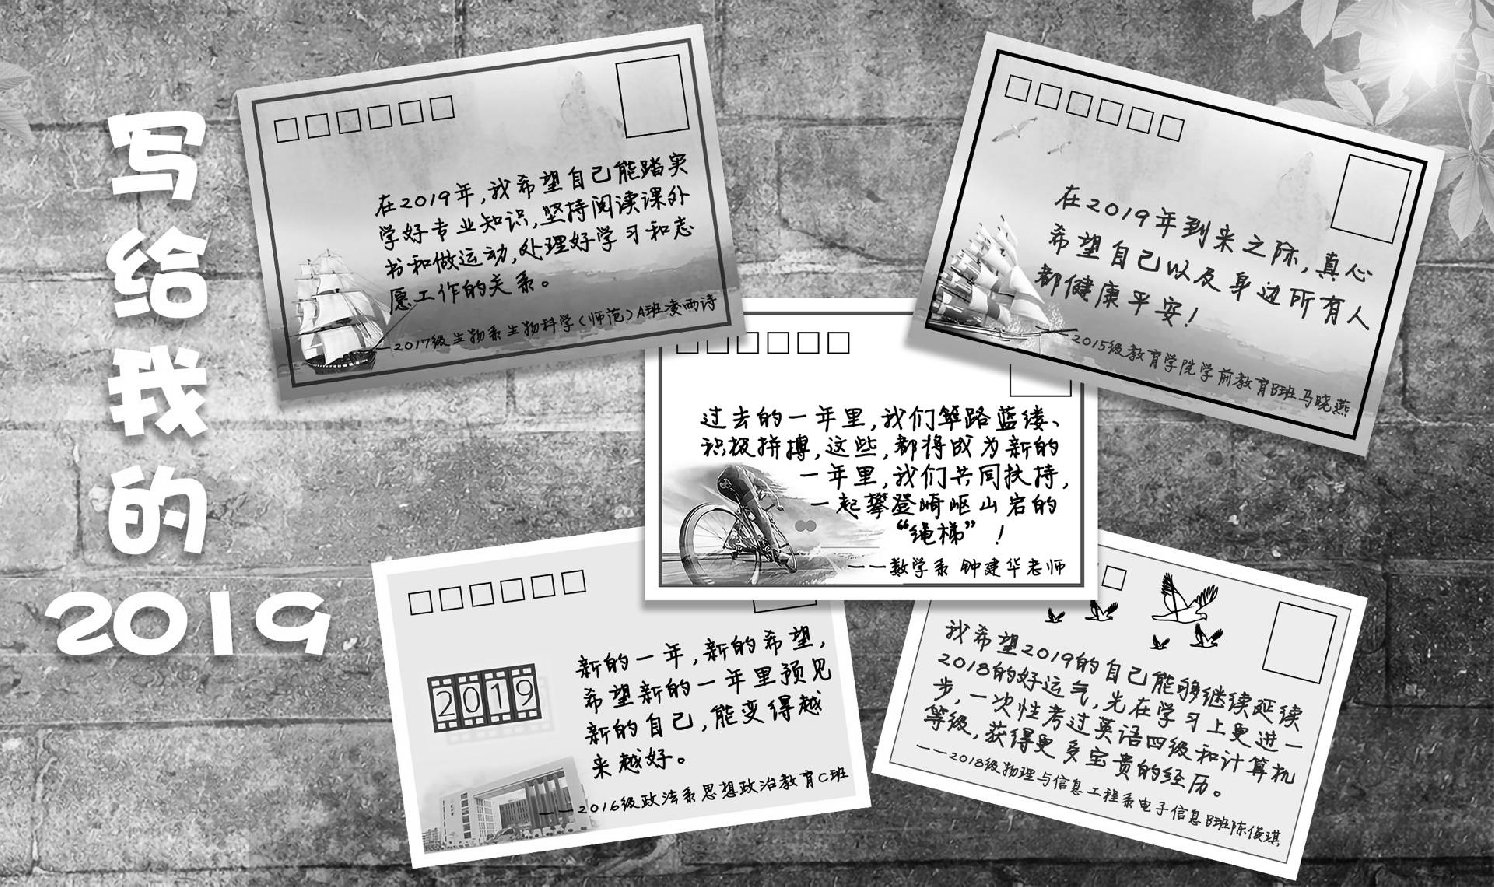 写给我的
2019
在2019年,我希望自己能踏实
学好专业知识,坚持阅读课外
书和做运动,处理好学习和志
愿工作的关系。
——2017级生物系生物科学(师范)A班凌雨诗
在2019年到来之际,真心
希望自己以及身边所有人
都健康平安!
——2015级教育学院学前教育B班马晓燕
过去的一年里,我们筚路蓝缕、
积极拼搏,这些,都将成为新的
一年里,我们共同扶持,
一起攀登崎岖山岩的
“绳梯”!
——数学系 钟建华老师
新的一年,新的希望,
希望新的一年里预见
新的自己,能变得越
来越好。
——2016级政法系思想政治教育C班
2019
我希望2019的自己能够继续延续
2018的好运气,先在学习上更进一
步,一次性考过英语四级和计算机
等级,获得更多宝贵的经历。
——2018级物理与信息工程系电子信息B班陈俊琪